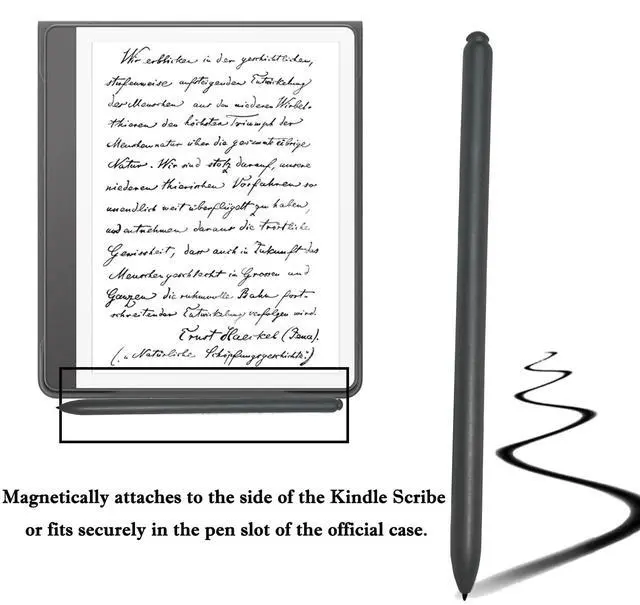 Wir erblicken in der geschichtlichen,
stufenweise aufsteigenden Entwickelung
des Menschen aus den niederen Wirbel-
thieren den höchsten Triumph der
Menschennatur über die gesammte übrige
Natur. Wir sind stolz darauf, unsere
niederen thierischen Vorfahren so
unendlich weit überflügelt zu haben,
und entnehmen daraus die tröstliche
Gewissheit, dass auch in Zukunft das
Menschengeschlecht im Grossen und
Ganzen die ruhmvolle Bahn fort-
schreitender Entwickelung verfolgen wird.
Ernst Haeckel (Jena).
Natürliche Schöpfungsgeschichte
Magnetically attaches to the side of the Kindle Scribe
or fits securely in the pen slot of the official case.